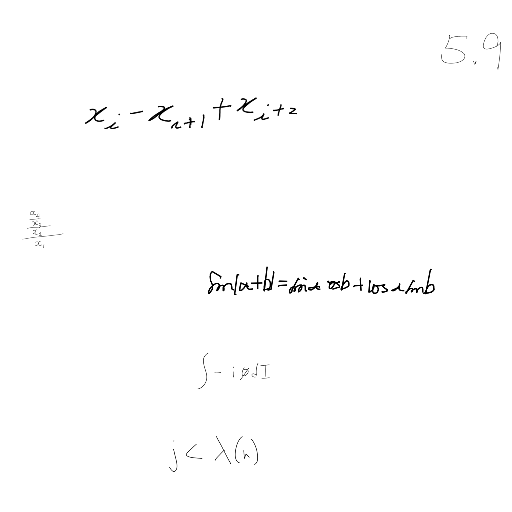 5.9
x_i - x_{i+1} + x_{i+2}
sin(a+b)=sin a cos b+cos a sin b
∫ - i ø dI
j < λ(n)